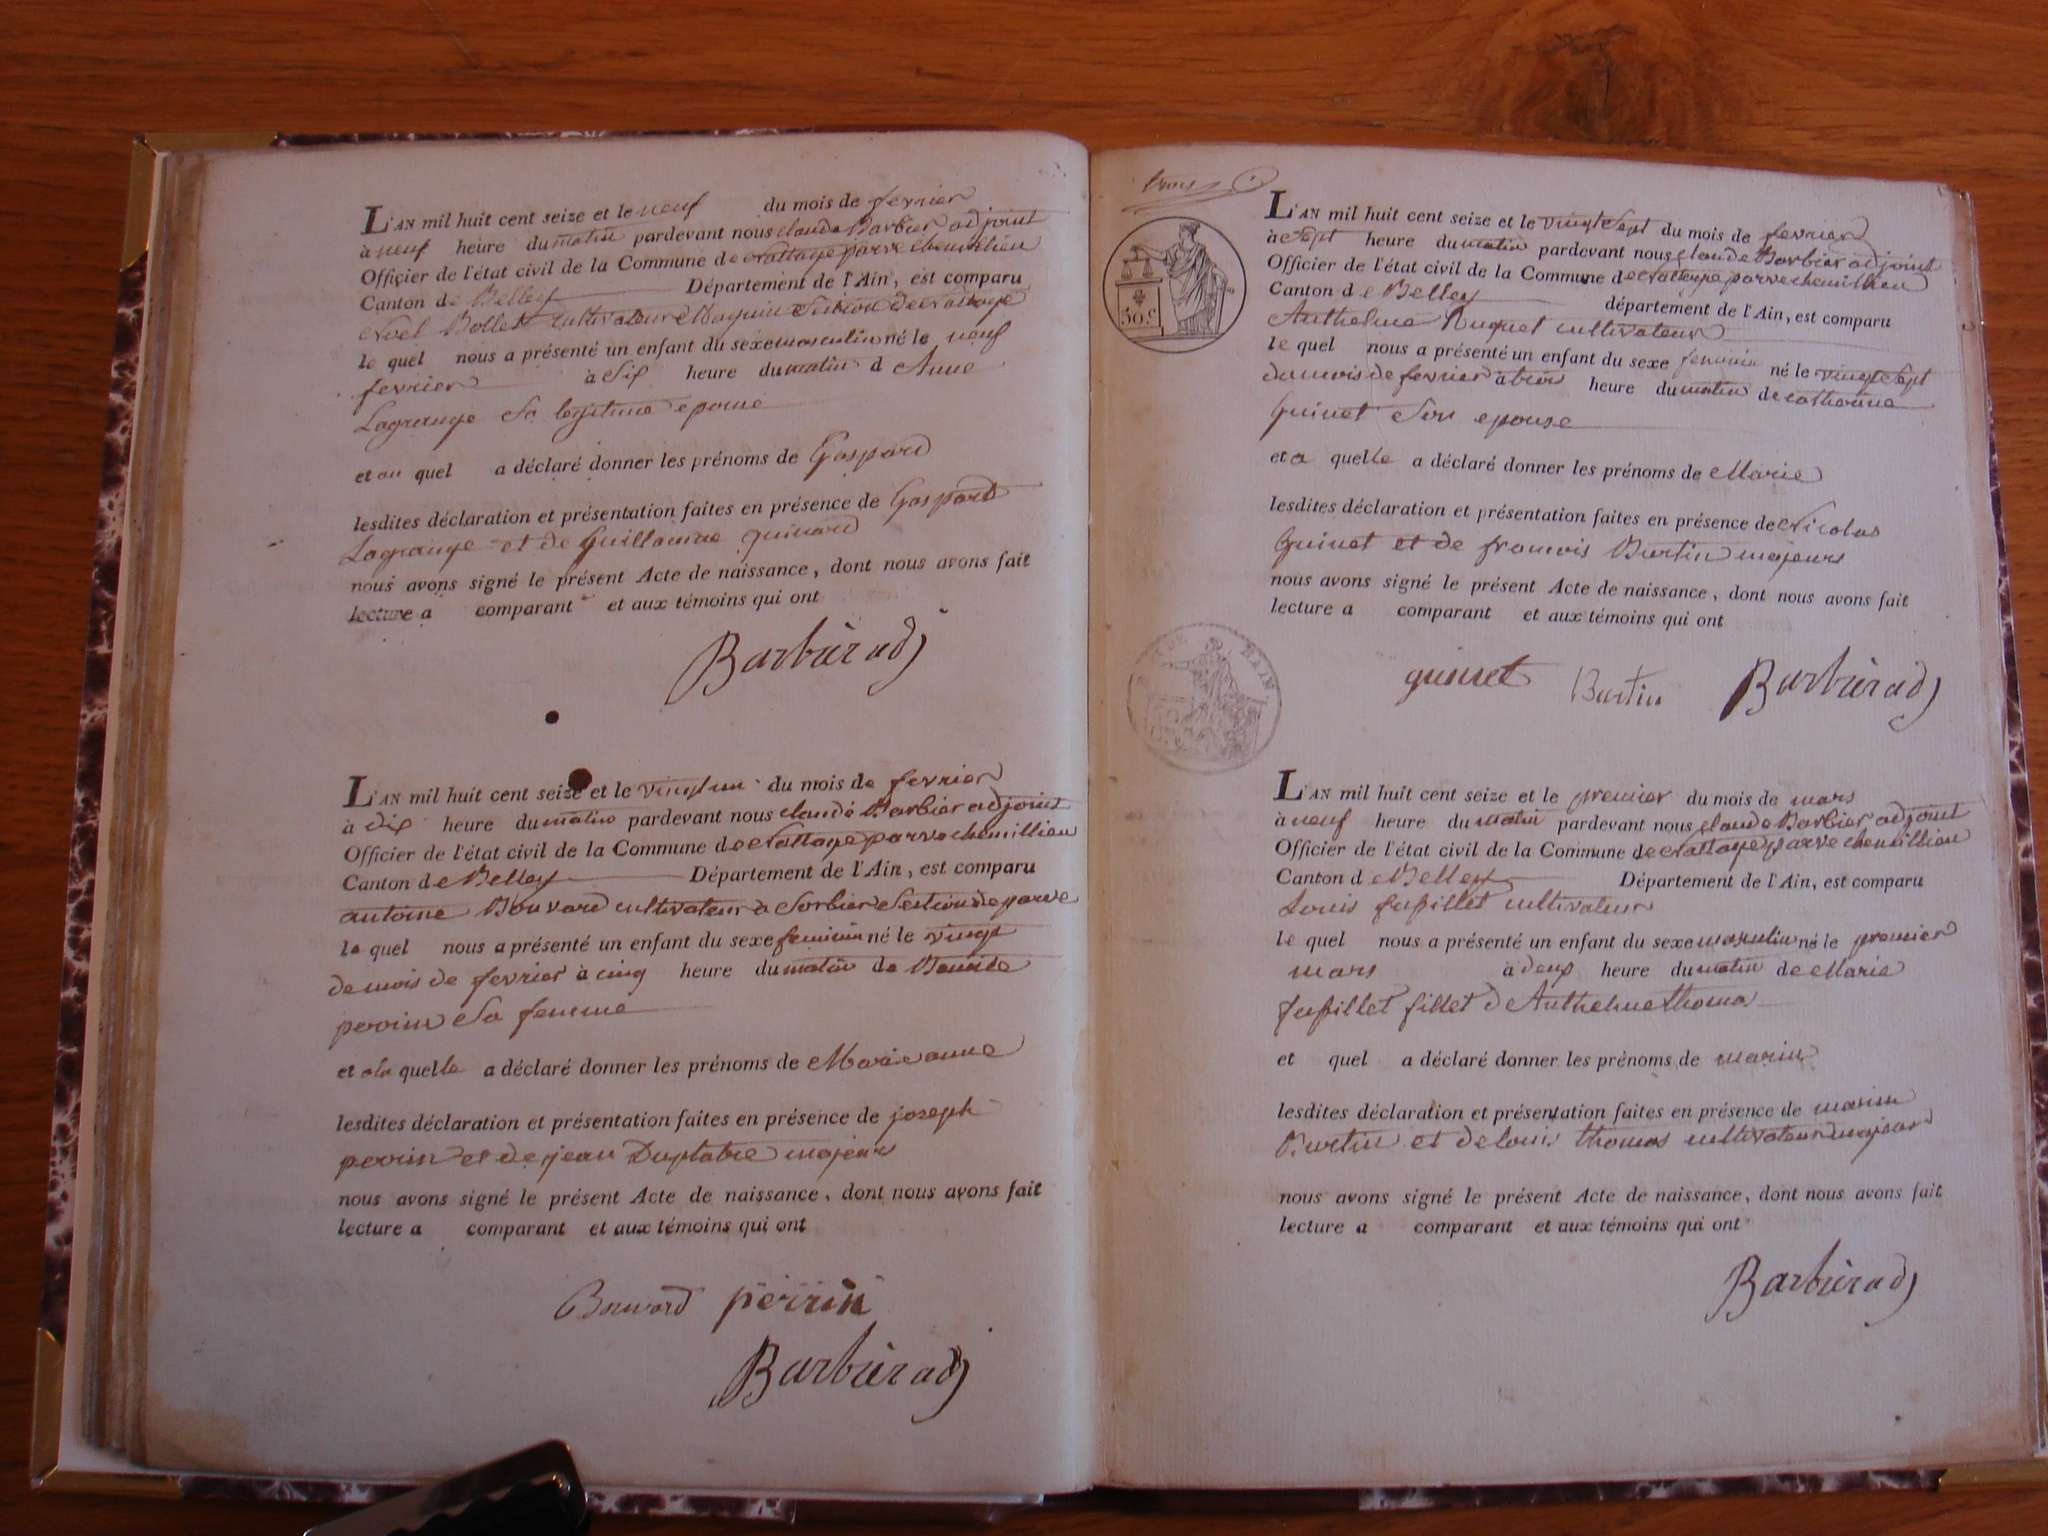 L'AN mil huit cent seize et le neuf du mois de fevrier
à neuf heure du matin pardevant nous claude Barbier adjoint
Officier de l'état civil de la Commune de Nattage parve chemillieu
Canton de Belley Département de l'Ain, est comparu
Noel Bollet cultivateur Section de Nattage
le quel nous a présenté un enfant du sexe masculin né le neuf
fevrier à Six heure du matin d Anne
Lagrange Sa legitime epouse
et au quel a déclaré donner les prénoms de Gaspard
lesdites déclaration et présentation faites en présence de Gaspard
Lagrange et de Guillaume guinard
nous avons signé le présent Acte de naissance, dont nous avons fait
lecture a comparant et aux témoins qui ont
Barbier adj
L'AN mil huit cent seize et le vingt un du mois de fevrier
à dix heure du matin pardevant nous claude Barbier adjoint
Officier de l'état civil de la Commune de Nattage parve chemillieu
Canton de Belley Département de l'Ain, est comparu
antoine Bouvard cultivateur à Sorbier Section de parve
le quel nous a présenté un enfant du sexe feminin né le vingt
du mois de fevrier à cinq heure du matin de Benoite
perrin Sa femme
et a la quelle a déclaré donner les prénoms de Marie anne
lesdites déclaration et présentation faites en présence de joseph
perrin et de jean Duplatre majeurs
nous avons signé le présent Acte de naissance, dont nous avons fait
lecture a comparant et aux témoins qui ont
Bouvard perrin
Barbier adj
trois
50 c
L'AN mil huit cent seize et le vingt Sept du mois de fevrier
à Sept heure du matin pardevant nous claude Barbier adjoint
Officier de l'état civil de la Commune de Nattage parve chemillieu
Canton de Belley département de l'Ain, est comparu
Anthelme Huguet cultivateur
le quel nous a présenté un enfant du sexe feminin né le vingt Sept
du mois de fevrier à trois heure du matin de catherine
Guinet Son epouse
et a quelle a déclaré donner les prénoms de Marie
lesdites déclaration et présentation faites en présence de Nicolas
Guinet et de francois Burtin majeurs
nous avons signé le présent Acte de naissance, dont nous avons fait
lecture a comparant et aux témoins qui ont
guinet Burtin Barbier adj
L'AN mil huit cent seize et le premier du mois de mars
à neuf heure du matin pardevant nous claude Barbier adjoint
Officier de l'état civil de la Commune de Nattage parve chemillieu
Canton d Belley Département de l'Ain, est comparu
Louis cultivateur
le quel nous a présenté un enfant du sexe masculin né le premier
mars à deux heure du matin de Marie
fillet d Anthelme thoma
et quel a déclaré donner les prénoms de marin
lesdites déclaration et présentation faites en présence de marin
Burtin et de louis thomas cultivateur majeurs
nous avons signé le présent Acte de naissance, dont nous avons fait
lecture a comparant et aux témoins qui ont
Barbier adj